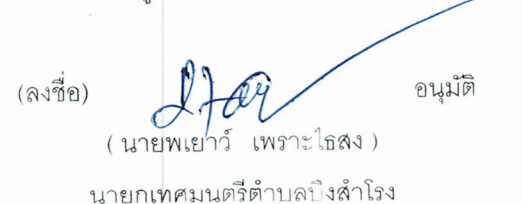 (ลงชื่อ) อนุมัติ
( นายพเยาว์ เพราะไธสง )
นายกเทศมนตรีตำบลบึงสำโรง